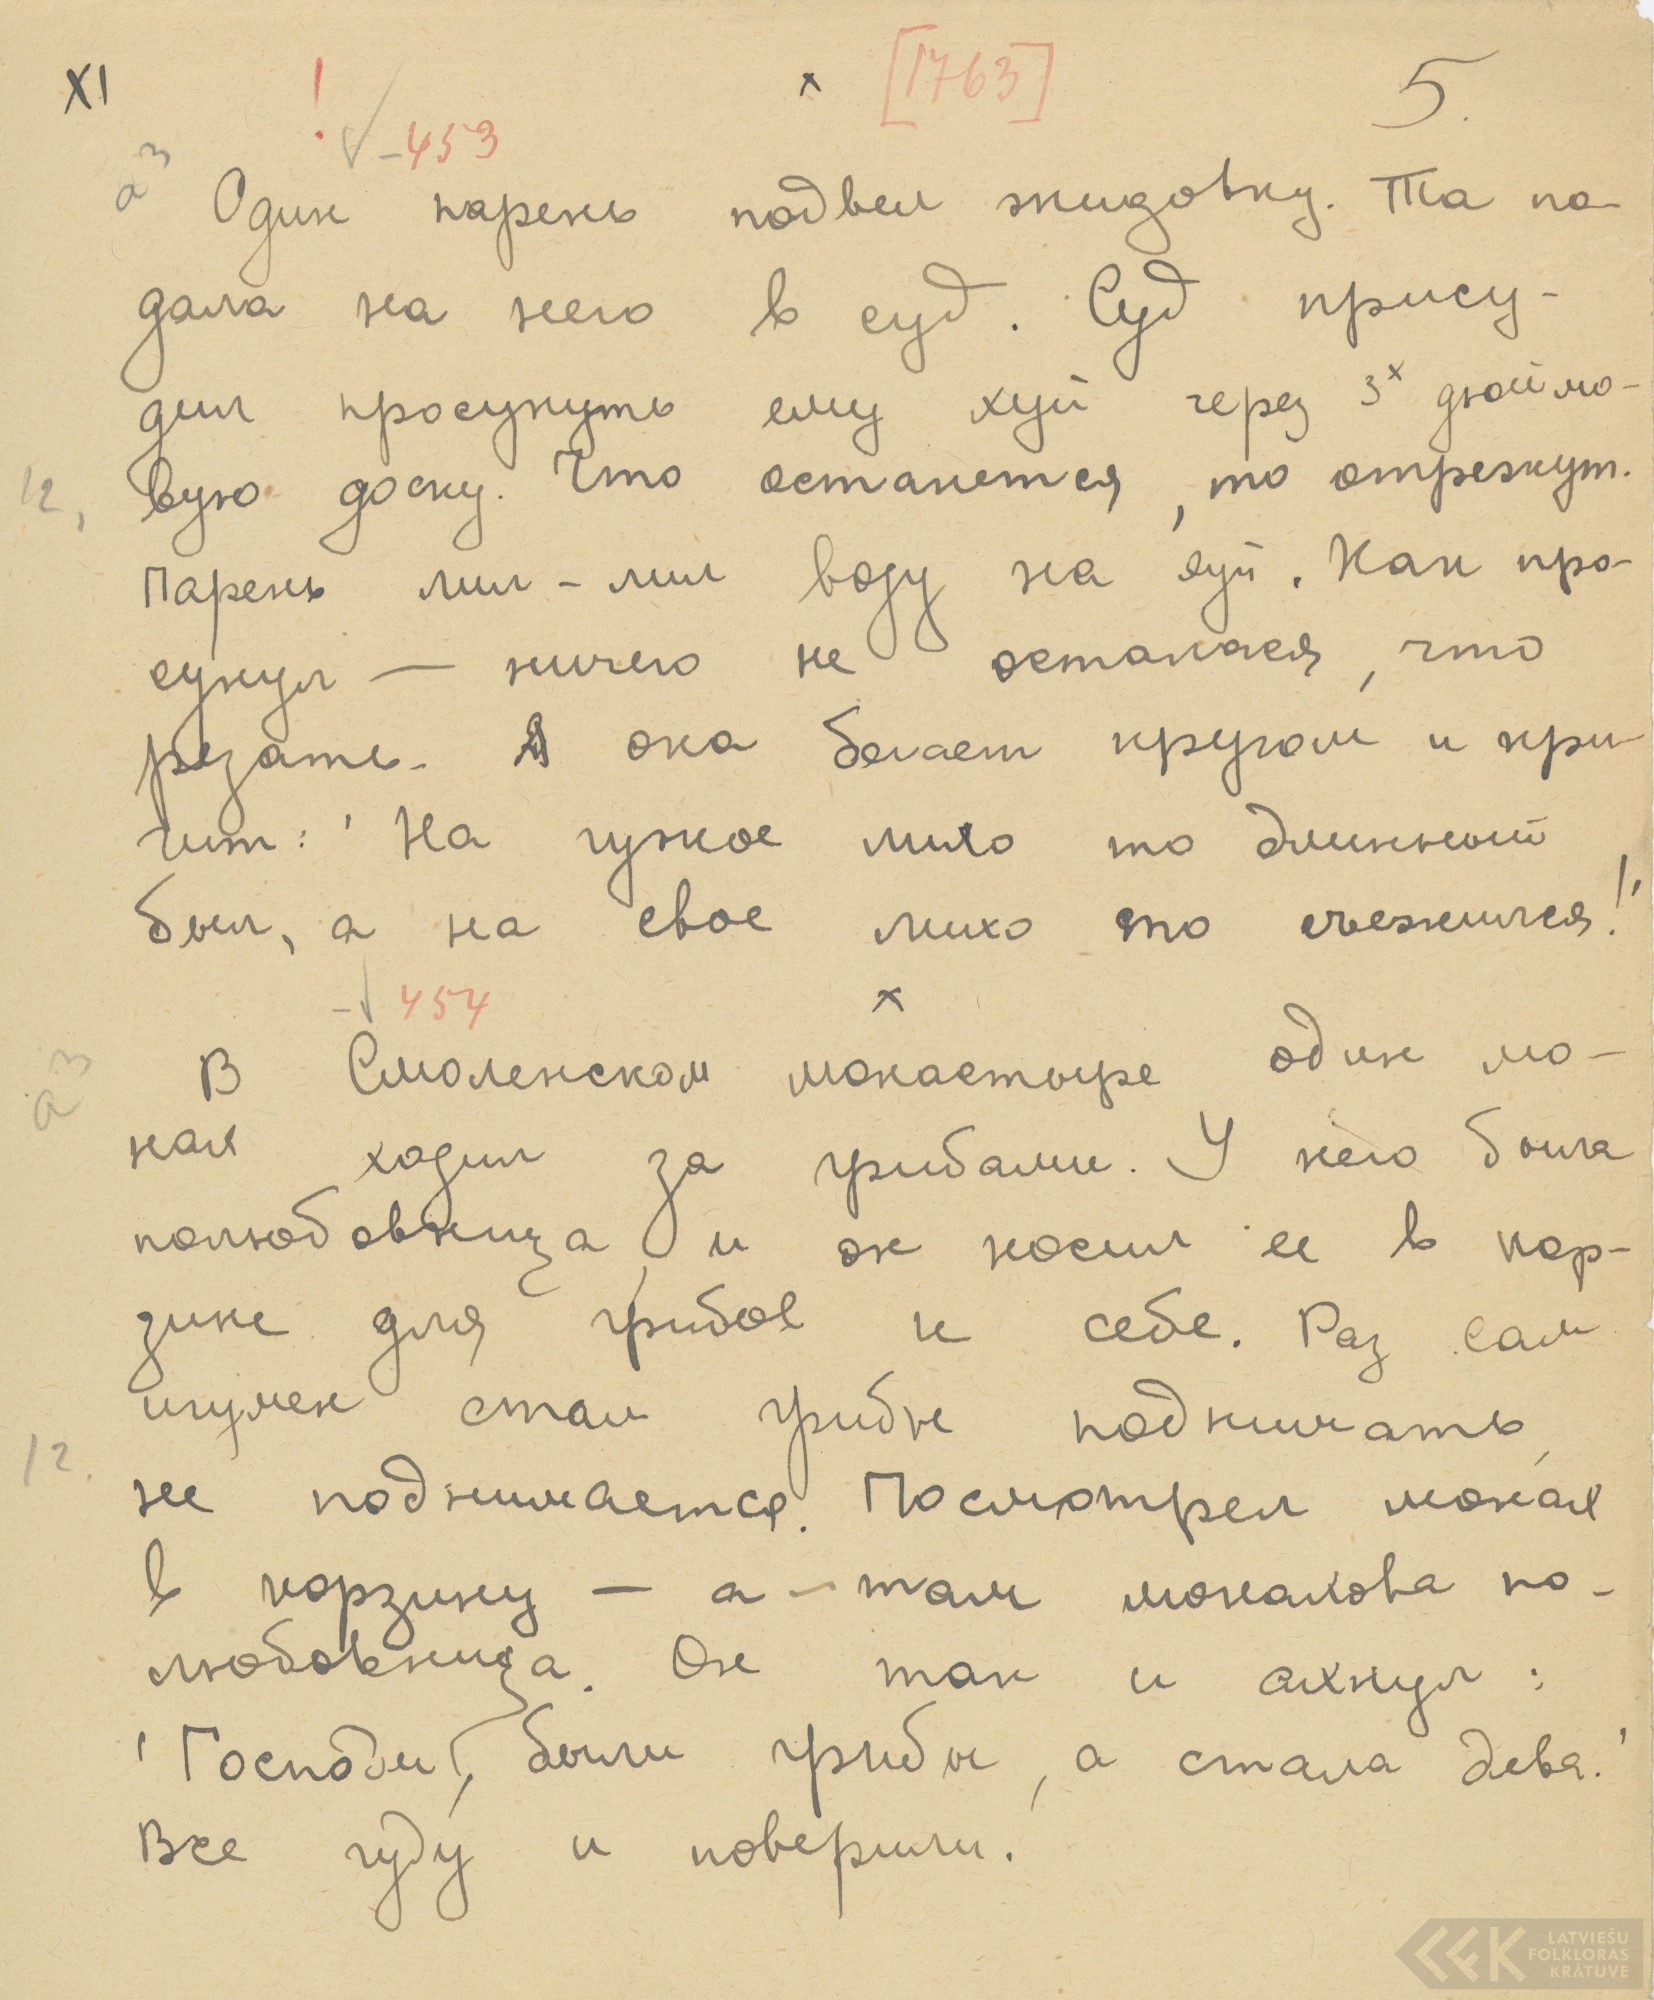 XI ! × [1763] 5.
– 453
а3 Один парень подвел жидовку. Та по-
дала на него в суд. Суд прису-
дил просунуть ему хуй через 3х дюймо-
12, вую доску. Что останется, то отрежут.
Парень лил – лил воду на хуй. Как про-
сунул — ничего не осталося, что
резать. А она бегает кругом и кри-
чит: 'На чужое лихо то длинный
был, а на свое лихо то съежился!'
– 454 ×
а3 В Смоленском монастыре один мо-
нах ходил за грибами. У него была
полюбовница, и он носил ее в кор-
зине для грибов к себе. Раз сам
игумен стал грибы поднимать,
12. не поднимается. Посмотрел монах
в корзину — а – там монахова по-
любовница. Он так и ахнул:
'Господи, были грибы, а стала дева.'
Все чуду и поверили.
LATVIEŠU
FOLKLORAS
KRĀTUVE